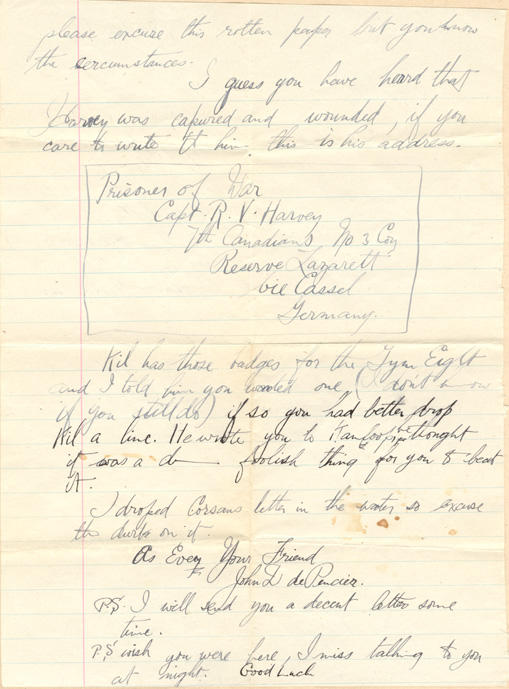 please excuse this rotten paper but you know
the sercumstances.
I guess you have heard that
Harvey was capured and wounded, if you
care to write to him this is his address.
Prisoner of War
Capt. R. V. Harvey
7th Canadians, No 3 Coy
Reserve Lazarett
vie Cassel
Germany.
Kil has those badges for the Gym Eight
and I told him you wanted one (I don't know
if you still do) if so you had better drop
Kil a line. He wrote you to Kamloops he thought
it was a d—— foolish thing for you to beat
it.
I droped Corsans letter in the water so excuse
the durb on it.
As Ever Your Friend
John L de Pencier.
P.S. I will send you a decent letter some
time.
P.S wish you were here, I miss talking to you
at night. Good Luck